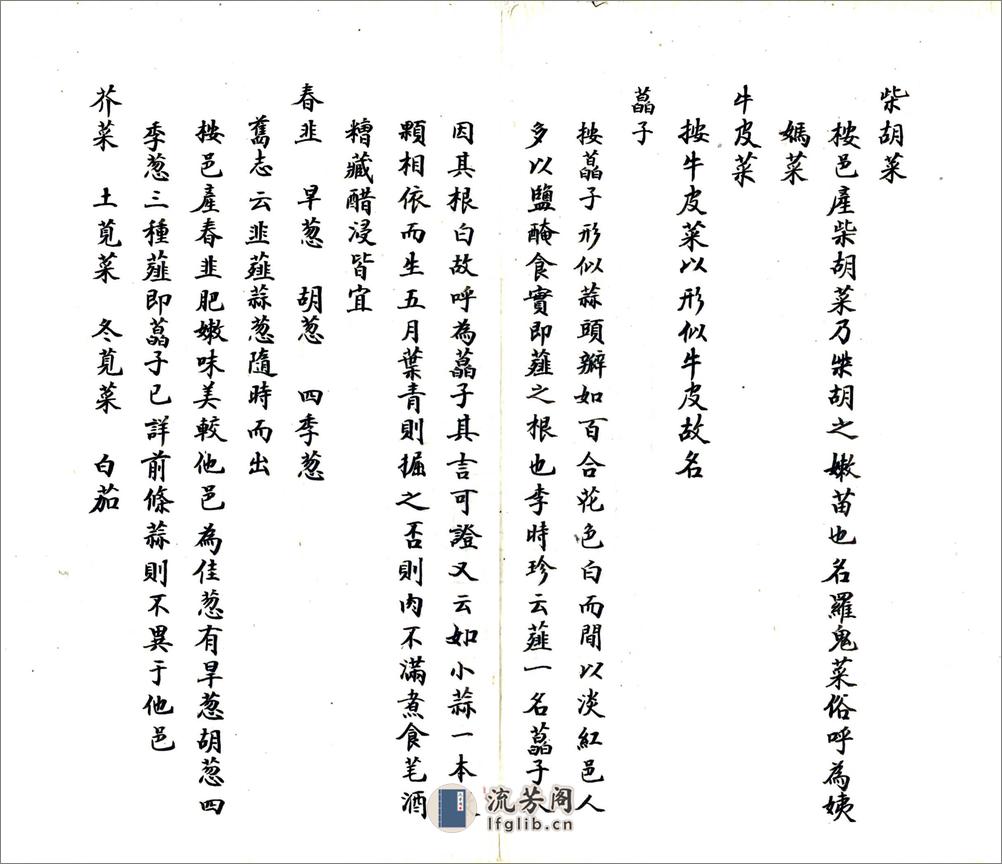 柴胡菜
按邑產柴胡菜乃柴胡之嫩苗也名羅鬼菜俗呼為姨
媽菜
牛皮菜
按牛皮菜以形似牛皮故名
藠子
按藠子形似蒜頭瓣如百合花色白而間以淡紅邑人
多以鹽醃食實即薤之根也李時珍云薤一名藠子
因其根白故呼為藠子其言可證又云如小蒜一本
顆相依而生五月葉青則掘之否則肉不滿煮食芼酒
糟藏醋浸皆宜
春韭 旱葱 胡葱 四季葱
舊志云韭薤蒜葱隨時而出
按邑產春韭肥嫩味美較他邑為佳葱有旱葱胡葱四
季葱三種薤即藠子已詳前條蒜則不異于他邑
芥菜 土莧菜 冬莧菜 白茄
流芳阁
lfglib.cn